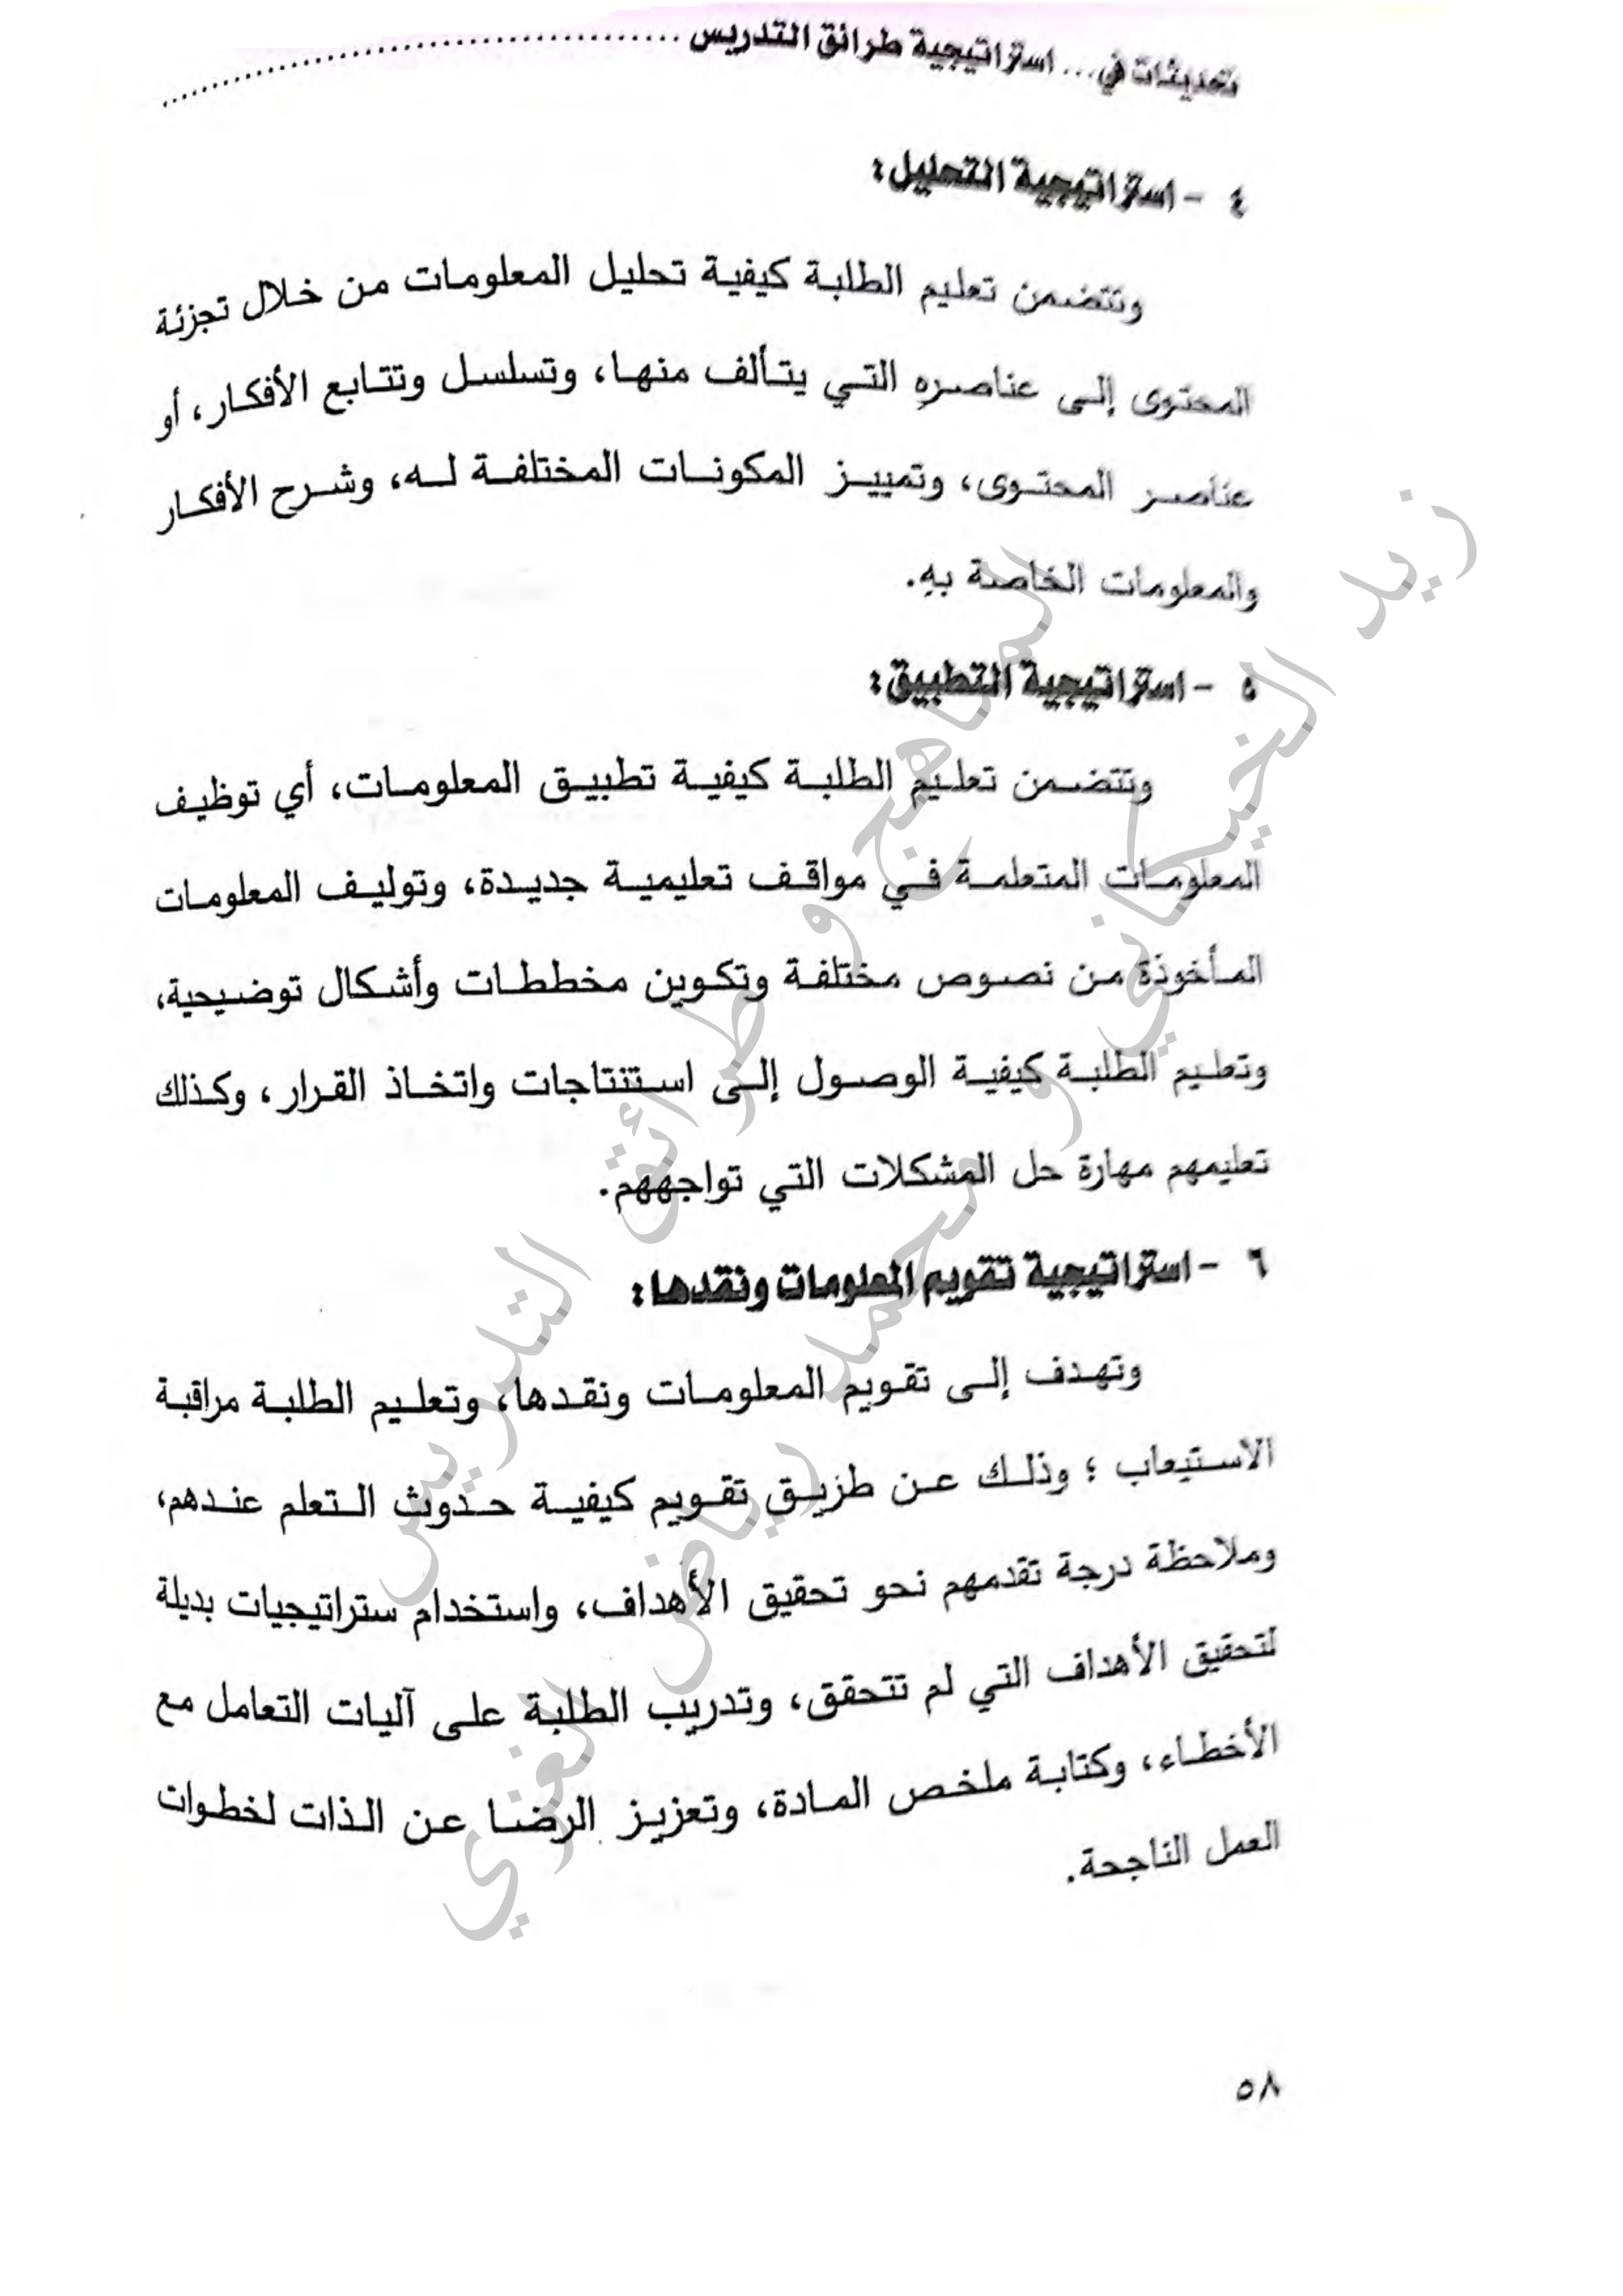 تحديثات في... استراتيجية طرائق التدريس
٤ - استراتيجية التحليل:
وتتضمن تعليم الطلبة كيفية تحليل المعلومات من خلال تجزئة
المحتوى إلى عناصرِهِ التي يتألف منها، وتسلسل وتتابع الأفكار، أو
عناصر المحتوى، وتمييز المكونات المختلفة له، وشرح الأفكار
والمعلومات الخاصة بهِ.
٥ - استراتيجية التطبيق:
وتتضمن تعليم الطلبة كيفية تطبيق المعلومات، أي توظيف
المعلومات المتعلمة في مواقف تعليمية جديدة، وتوليف المعلومات
المأخوذة من نصوص مختلفة وتكوين مخططات وأشكال توضيحية،
وتعليم الطلبة كيفية الوصول إلى استنتاجات واتخاذ القرار، وكذلك
تعليمهم مهارة حل المشكلات التي تواجههم.
٦ - استراتيجية تقويم المعلومات ونقدها:
وتهدف إلى تقويم المعلومات ونقدها، وتعليم الطلبة مراقبة
الاستيعاب ؛ وذلك عن طريق تقويم كيفية حدوث التعلم عندهم،
وملاحظة درجة تقدمهم نحو تحقيق الأهداف، واستخدام ستراتيجيات بديلة
لتحقيق الأهداف التي لم تتحقق، وتدريب الطلبة على آليات التعامل مع
الأخطاء، وكتابة ملخص المادة، وتعزيز الرضا عن الذات لخطوات
العمل الناجحة.
٥٨
المناهج و طرائق التدريس
زيد الخيكاني و محمد رياض الغزي